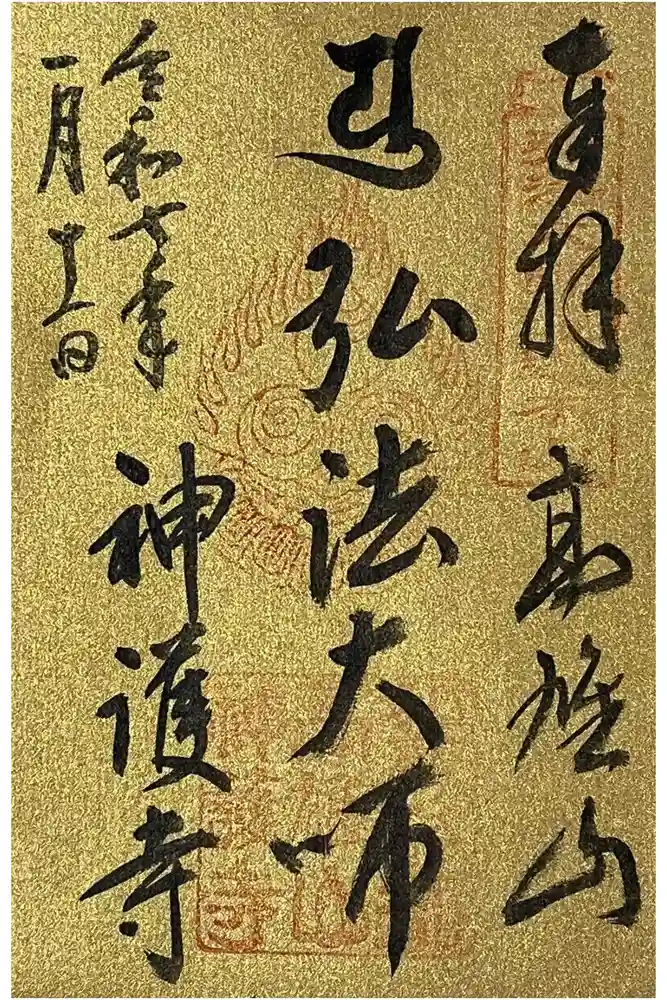 奉拝 高雄山
𑖧𑖲 弘法大師
神護寺
令和七年
一月十一日